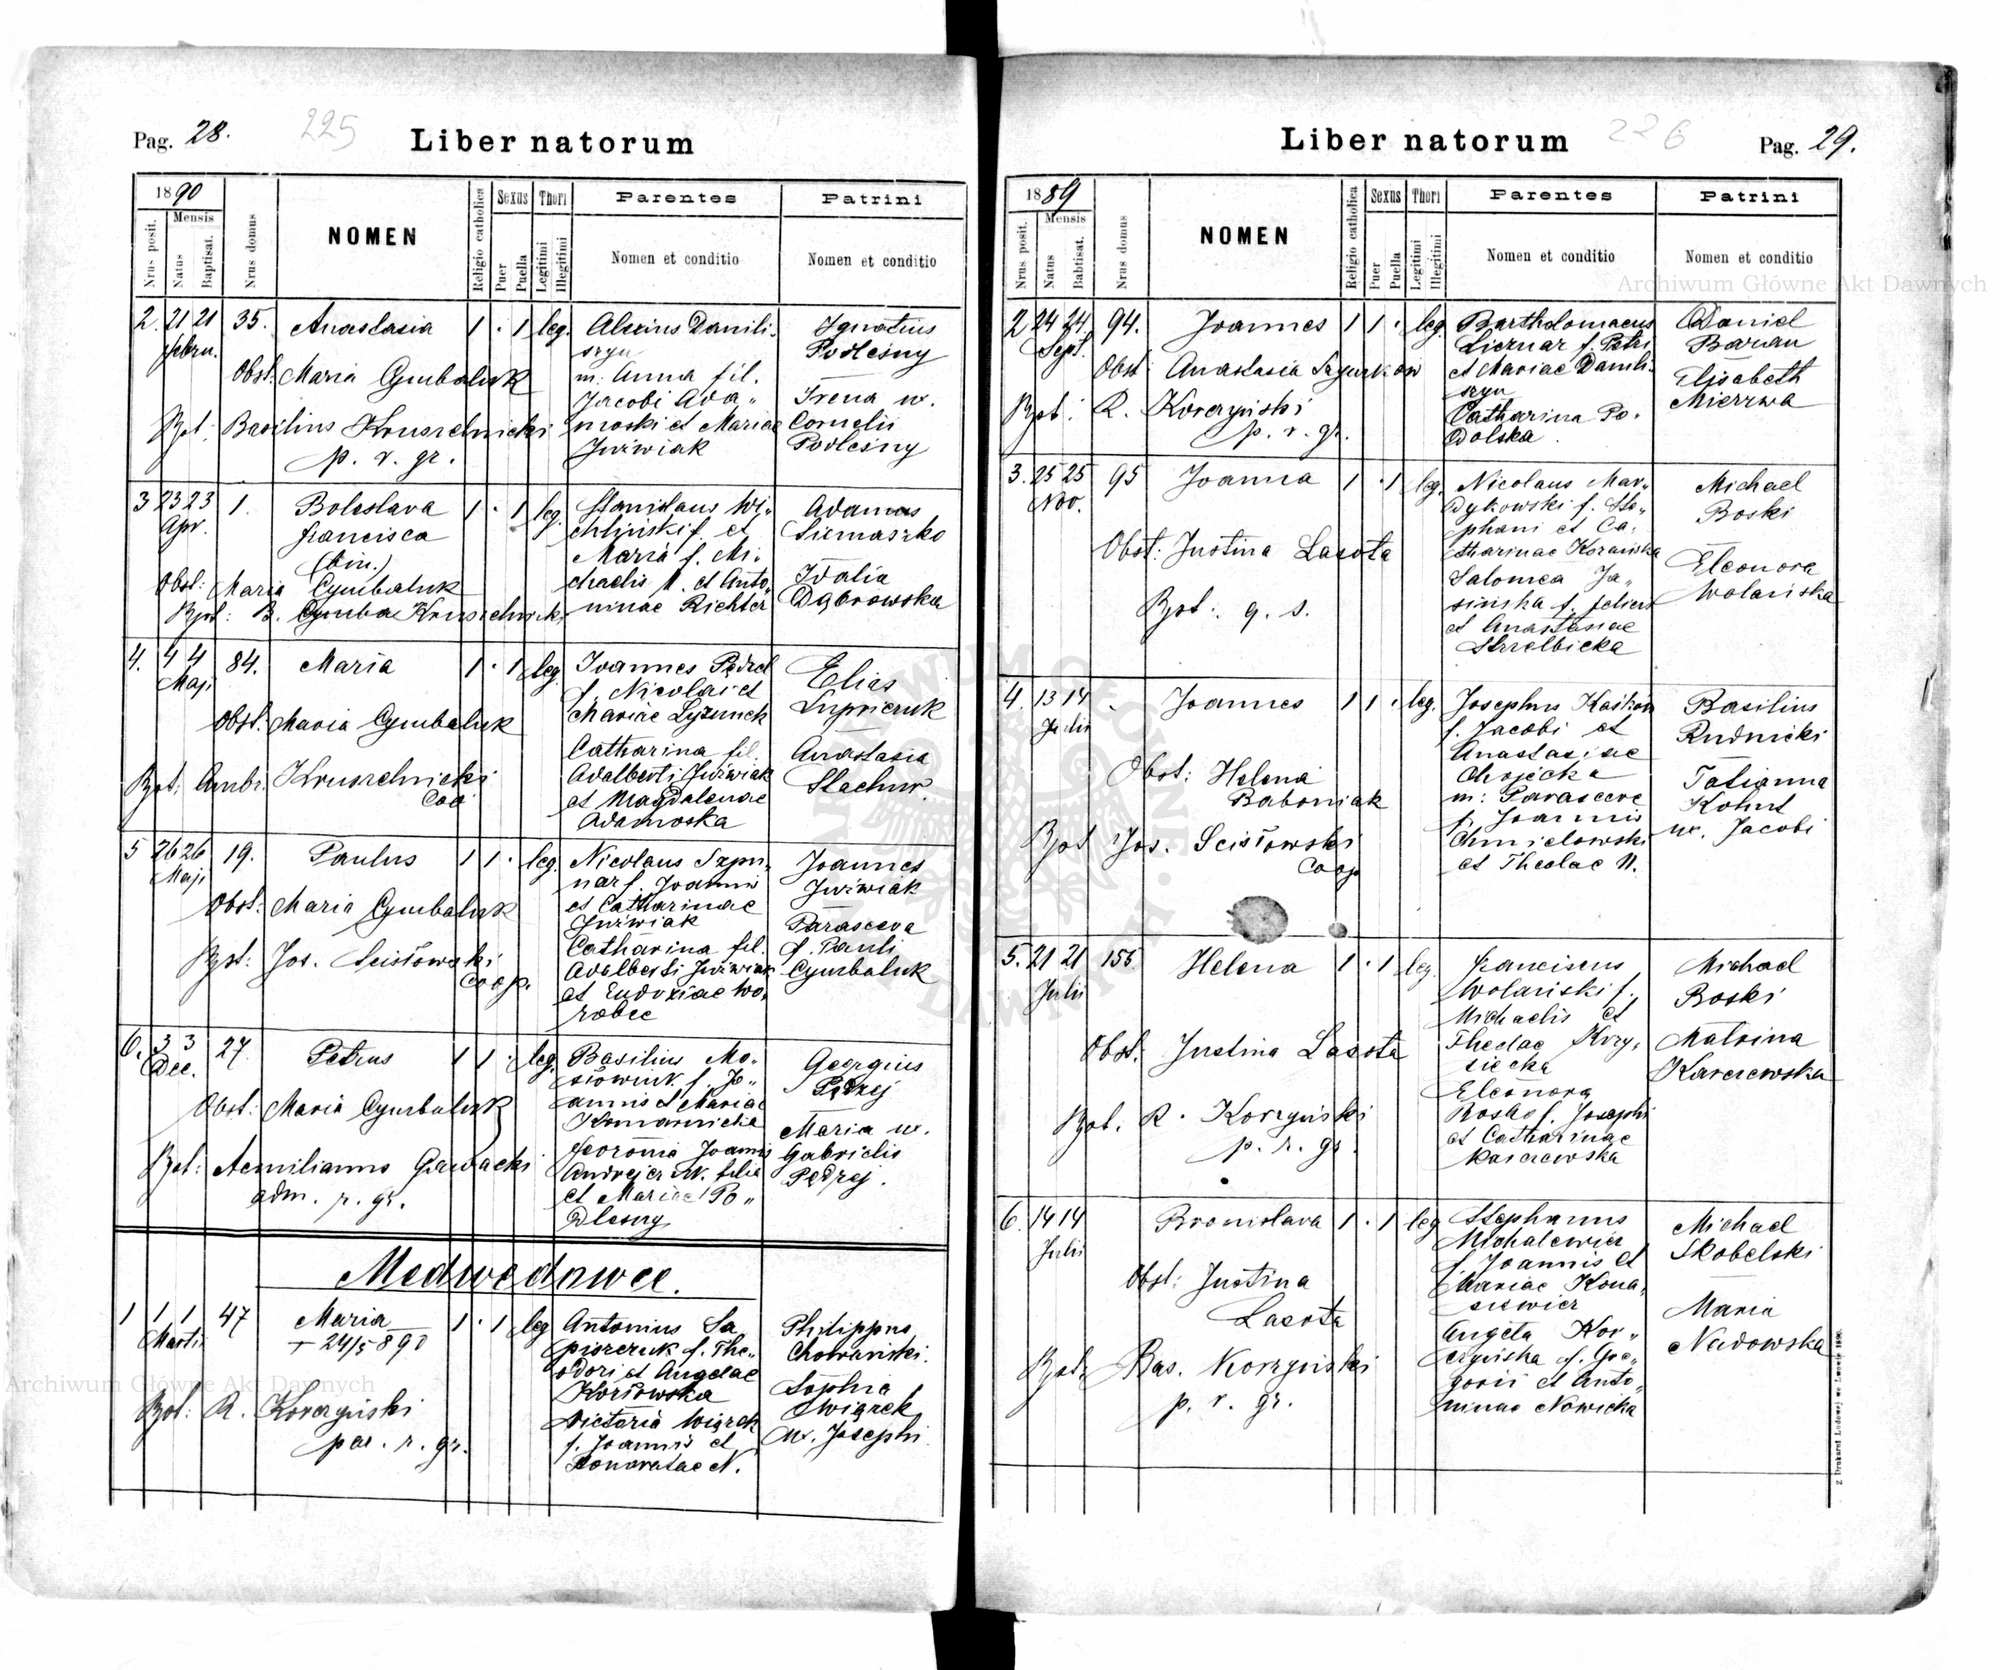 Pag. 28.
225
Liber natorum
1890
Nrus posit.
Mensis
Natus
Baptisat.
Nrus domus
NOMEN
Religio catholica
Sexus
Puer
Puella
Thori
Legitimi
Illegitimi
Parentes
Nomen et conditio
Patrini
Nomen et conditio
2. 21 21 35. Anastasia 1 . 1 leg.
Febru.
Obst: Maria Cymbaluk
Bpt: Basilius Kruszelnicki
p. r. gr.
Alexius Danili-
szyn
m: Anna fil.
Jacobi Ada-
moski et Mariae
Juźwiak
Ignatius
Podleśny
Irena ux.
Cornelii
Podleśny
3 23 23 1. Boleslava 1 . 1 leg.
Apr.
Francisca
(bin.)
Obst: Maria Cymbaluk
Bpt: B. Kruszelnicki
Stanislaus
f. et
Maria f. Mi-
chaelis N. et Anto-
ninae Richter
Adamus
Siemaszko
Idalia
Dąbrowska
4. 4 4 84. Maria 1 . 1 leg
Maji
Obst: Maria Cymbaluk
Bpt: Ambr. Kruszelnicki
Coo
Joannes
f. Nicolai et
Mariae
Catharina fil.
Adalberti Juźwiak
et Magdalenae
Adamoska
Elias
Anastasia
5 26 26 19. Paulus 1 1 . leg.
Maji
Obst: Maria Cymbaluk
Bpt: Jos. Scisłowski
Coop.
Nicolaus Szpy-
nar f. Joannis
et Catharinae
Juźwiak
Catharina fil.
Adalberti Juźwiak
et Eudoxiae Wo-
robec
Joannes
Juźwiak
Parasceva
f. Pauli
Cymbaluk
6. 3 3 27 Petrus 1 1 . leg.
Dec.
Obst: Maria Cymbaluk
Bpt: Aemilianus
adm. r. gr.
Basilius
f. Jo-
annis et Mariae
Komarnicka
Joannis
filia
et Mariae Po-
dlesny
Georgius
Pędzej
Maria ux.
Gabrielis
Pędzej.
Medwedowce.
1 1 1 47 Maria 1 . 1 leg
Martii
+ 24/5 890
Bpt: R. Korczyński
par. r. gr.
Antonius Sa-
f. The-
odori et Angelae
Kozłowska
Victoria
f. Joannis et
Honoratae N.
Philippus
Chowański.
Sophia
ux. Josephi
Liber natorum
226
Pag. 29.
1889
Nrus posit.
Mensis
Natus
Babtisat.
Nrus domus
NOMEN
Religio catholica
Sexus
Puer
Puella
Thori
Legitimi
Illegitimi
Parentes
Nomen et conditio
Patrini
Nomen et conditio
2 24 24 94. Joannes 1 1 . leg
Sept.
Obst: Anastasia
Bpt: R. Korczyński
p. r. gr.
Bartholomaeus
f. Petri
et Mariae Danili-
szyn
Catharina Po-
dolska
Daniel
Baran
Elisabeth
Mierzwa
3. 25 25 95 Joanna 1 . 1 leg.
Nov.
Obst: Justina Lasota
Bpt: q. s.
Nicolaus Mar-
dykowski f. Ste-
phani et Ca-
tharinae
Salomea Ja-
sińska f. Felicis
et Anastasiae
Strzelbicka
Michael
Boski
Eleonora
Wolańska
4 13 14 . Joannes 1 1 . leg.
Julii
Obst: Helena
Baboniak
Bpt Jos. Scisłowski
Coop
Josephus
f. Jacobi et
Anastasiae
m: Parasceve
f. Joannis
Chmielowski
et Theclae N.
Basilius
Rudnicki
Tatianna
Kohut
ux. Jacobi
5. 21 21 155 Helena 1 . 1 leg.
Julii
Obst: Justina Lasota
Bpt. R. Korzyński
p. r. gr
Franciscus
Wolański f.
Michaelis et
Theclae
Eleonora
Boska f. Josephi
et Catharinae
Karczewska
Michael
Boski
Matrina
Karczewska
6. 14 14 Bronislava 1 . 1 leg
Julii
Obst: Justina
Lasota
Bpt: Bas. Korzyński
p. r. gr.
Stephanus
Michalewicz
f. Joannis et
Mariae Kona-
siewicz
Angela Kor-
czyńska f. Gre-
gorii et Anto-
ninae Nowicka
Michael
Skobelski
Maria
Nadowska
Z Drukarni Ludowej we Lwowie 1890.
Archiwum Główne Akt Dawnych
Archiwum Główne Akt Dawnych
ARCHIWUM GŁÓWNE AKT DAWNYCH